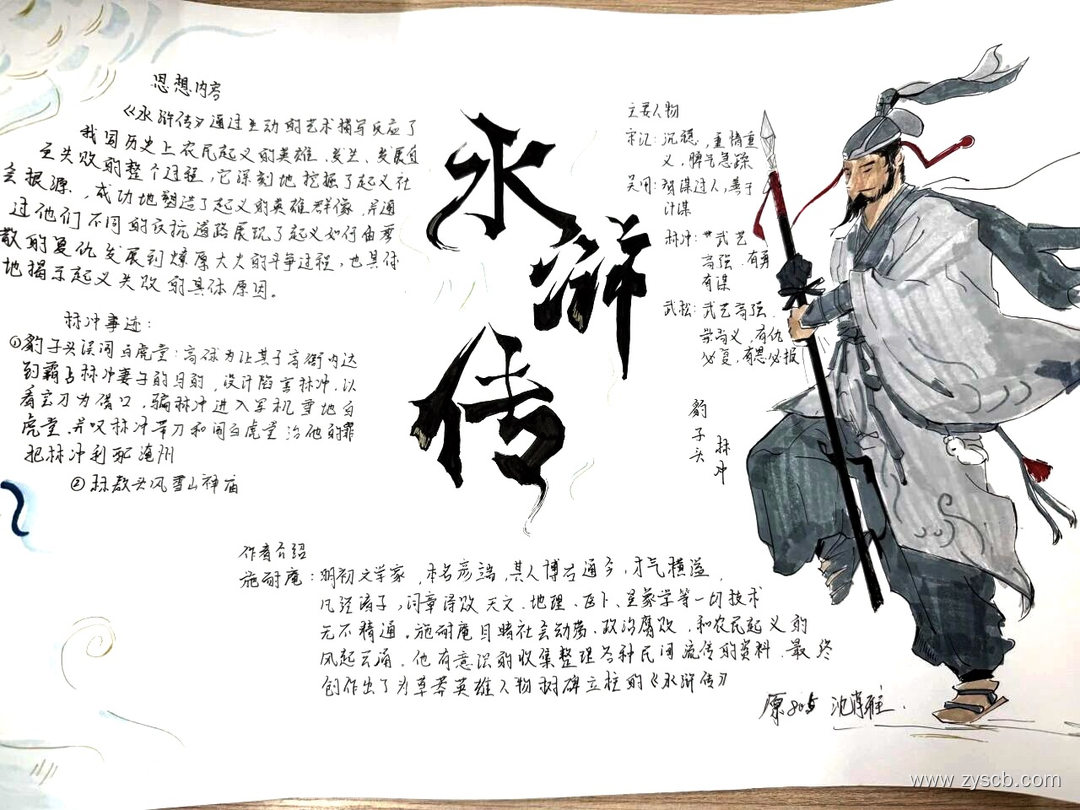 思想内容
《水浒传》通过生动的艺术描写反应了
我国历史上农民起义的英雄、发生、发展直
至失败的整个过程,它深刻地挖掘了起义社
会根源,成功地塑造了起义的英雄群像,并通
过他们不同的反抗道路展现了起义如何由零
散的复仇发展到燎原大火的斗争过程,也具体
地揭示起义失败的具体原因。
林冲事迹:
①豹子头误闯白虎堂:高俅为让其子高衙内达
到霸占林冲妻子的目的,设计陷害林冲,以
看宝刀为借口,骗林冲进入军机重地白
虎堂,并以林冲带刀和闯白虎堂治他的罪
把林冲刺配沧州
②林教头风雪山神庙
水浒传
主要人物
宋江:沉稳,重情重
义,脾气急躁
吴用:智谋过人,善于
计谋
林冲:武艺
高强、有勇
有谋
武松:武艺高强、
崇尚义,有仇
必复,有恩必报
豹子头
林冲
作者介绍
施耐庵:明初文学家,本名彦端,其人博古通今,才气横溢,
凡经诸子,词章诗歌天文、地理、医卜、星象学等一切技术
无不精通。施耐庵目睹社会动荡、政治腐败,和农民起义的
风起云涌,他有意识的收集整理各种民间流传的资料,最终
创作出了为草莽英雄人物树碑立柱的《水浒传》
原805 沈
www.zyscb.com